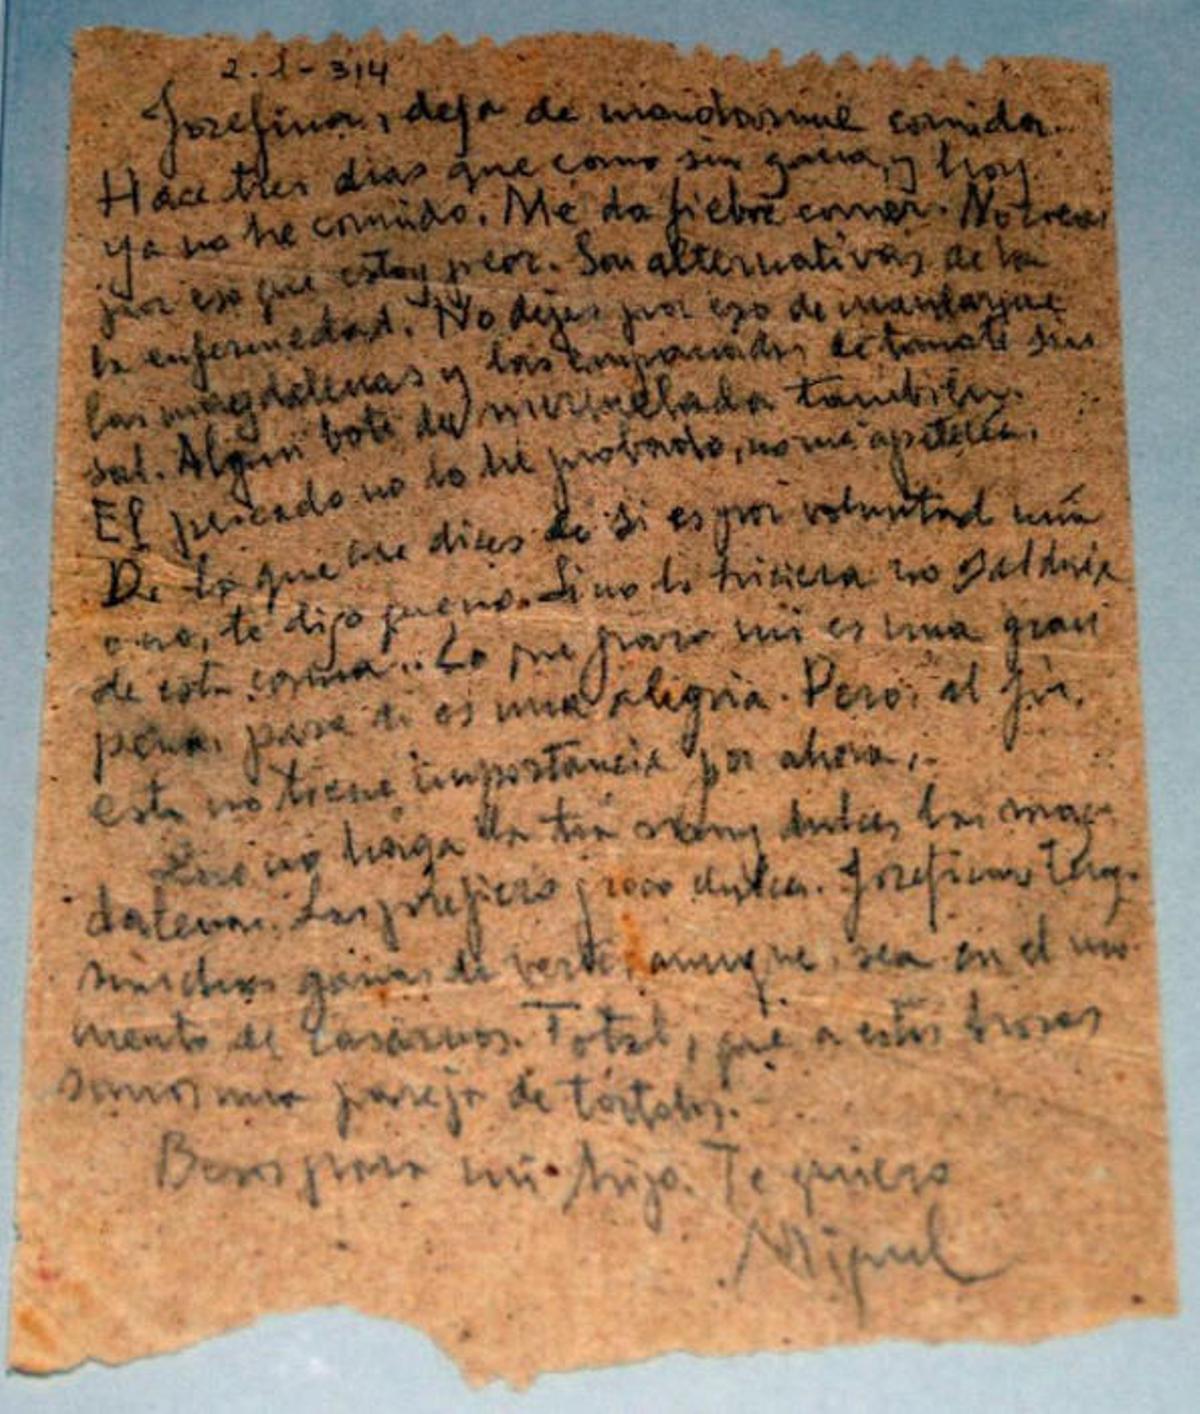 2.1-314
Josefina, deja de mandarme comida.
Hace tres días que como sin gana, y hoy
ya no he comido. Me da fiebre comer. No creas
por eso que estoy peor. Son alternativas de la
la enfermedad. No dejes por eso de mandarme
las magdalenas y las empanadas de tomate sin
sal. Algún bote de mermelada también.
El pescado no lo he probado, no me apetecía.
De lo que me dices de si es por voluntad mía
o no, te digo que no. Si no lo hiciera no saldría
de esta cama.. Lo que para mí es una gran
pena, para ti es una alegría. Pero, al fin,
esto no tiene importancia por ahora,.
Que no haga la tía muy dulces las mag-
dalenas. Las prefiero poco dulces. Josefina, tengo
muchas ganas de verte, aunque sea en el mo-
mento de casarnos. Total, que a estas horas
somos una pareja de tórtolos.
Besos para mi hijo. Te quiero
Miguel